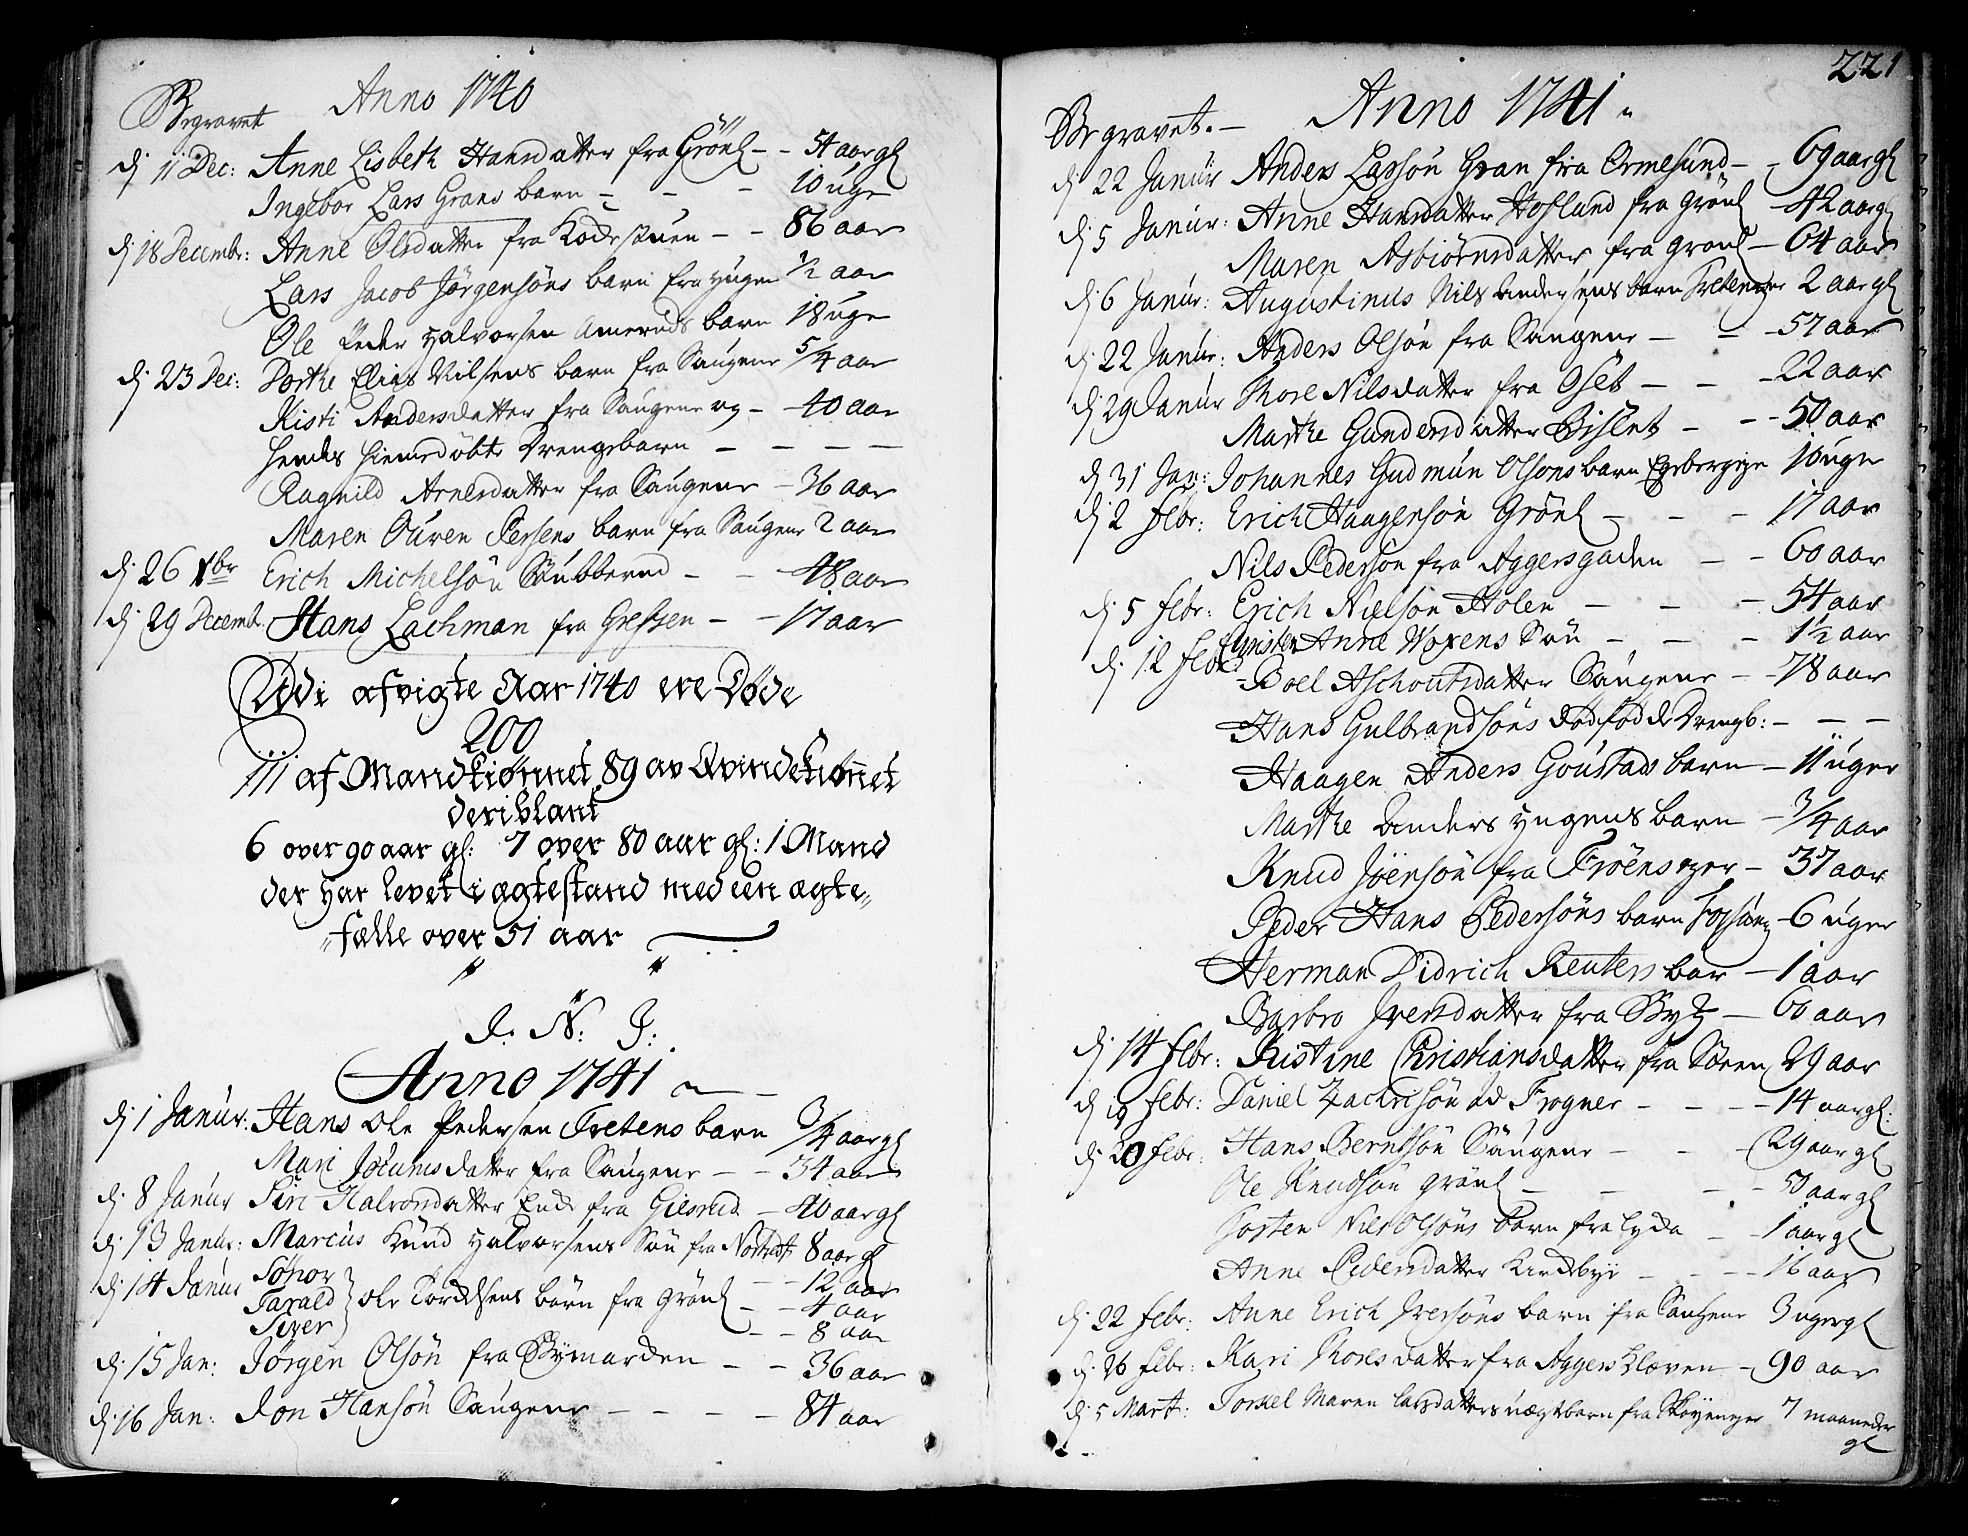 Anno 1740
Begravet
dj 11 Dec: Anne Lisbeth Hansdatter fra Grönl - - 54 aar gl
Ingebor Lars Grans barn - - - 10 uge
dj 18 Decembr: Anne Olsdatter fra Kodestuen - - 86 aar
Lars Jacob Jörgensöns barn fra 1/2 aar
Ole Peder Halvorsen Ameruds barn 18 uge
dj 23 Dec: Dorthe Elias Nilsens barn fra Saugene 5/4 aar
Kisti Andersdatter fra Saugene og - 40 aar
hendes hiemedöbte Drengebarn - - - -
Ragnild Arnesdatter fra Saugene - 36 aar
Maren Ouren Persens barn fra Saugene 2 aar
dj 26 Xbr Erich Michelsön Stubberud - - 48 aar
dj 29 Decemb. Hans Lachman fra Grefsen - - 17 aar
Udi afvigte Aar 1740 ere Døde
200
111 af Mandkiønnet, 89 av Qvindekiønnet
deriblant
6 over 90 aar gl: 7 over 80 aar gl: 1 Mand
der har levet i ægtestand med een ægte„
„fælle over 51 aar
J. N. J:
Anno 1741
dj 1 Janur: Hans Ole Pedersen Fretens barn 3/4 aar gl
Mari Jocumsdatter fra Saugene - - 34 aar
dj. 8 Janur Siri Halvorsdatter Ende fra Gilsrud - 40 aar gl
dj 13 Janur: Marcus Knud Halvorsens Sön fra Nordtvedt 8 aar gl
dj 14 Janur Sophor - - 12 aar
Tarald } Ole Tordesens börn fra Grönl - - 4 aar
Siver - - 8 aar
dj. 15 Jan: Jörgen Olsön fra Bymarcken - - 36 aar
dj 16 Jan: Jon Hansön Saugene - - - - 84 aar
221
Anno 1741
Begravet. -
dj 22 Janur Anders Larsön Gran fra Ormesund - - 69 aar gl
dj 5 Janur: Anne Hansdatter Hoflund fra Grönl - 42 aar gl
Maren Asbiörnsdatter fra Grönl - 64 aar
dj 6 Janur: Augustinus Nils Andersens barn 2 aar gl
dj 22 Janur: Anders Olsön fra Saugene - - 57 aar
dj 29 Janur Thore Nilsdatter fra Oset - - - 22 aar
Marthe Gundersdatter Bislet - - 50 aar
dj 31 Jan: Johannes Gudmun Olsons barn 16 uge
dj 2 Febr: Erich Haagensön Grönl - - - 17 aar
Nils Pedersön fra Aggersgaden - - 60 aar
dj 5 Febr: Erich Nielsön Holen - - - 54 aar
dj. 12 Febr Christen Anne Woxens Sön - - - 1 1/2 aar
Boel Aschoutsdatter Saugene - - 78 aar
Hans Gulbrandsöns dödföde Drengb: - - -
Haagen Anders Goustads barn - 11 uger
Marthe Anders barn - 3/4 aar
Knud Joensön fra - 37 aar
Peder Hans Pedersöns barn - 6 uger
Herman Didrich Reuters bar - 1 aar
Barbro Iversdatter fra - 60 aar
dj 14 Febr: Kistine Christiansdatter fra Sören 29 aar
dj 19 Febr: Daniel Zachrisön Frogner - - - 14 aar gl:
dj 20 Febr: Hans Berndsön Saugene - - - 29 aar gl
Ole Knudsön Grönl - - - - 50 aar gl
Torsten Nils Olsöns barn fra Lyda - - 1 aar gl
Anne Pedersdatter - - - - 16 aar
dj 22 Febr: Anne Erich Iversöns barn fra Saugene 3 uger gl
dj 26 Febr: Kari Thoresdatter fra Aggers Kleven - 90 aar
dj 5 Mart: Torkel Maren Larsdatters uægt barn fra 7 maaneder
gl